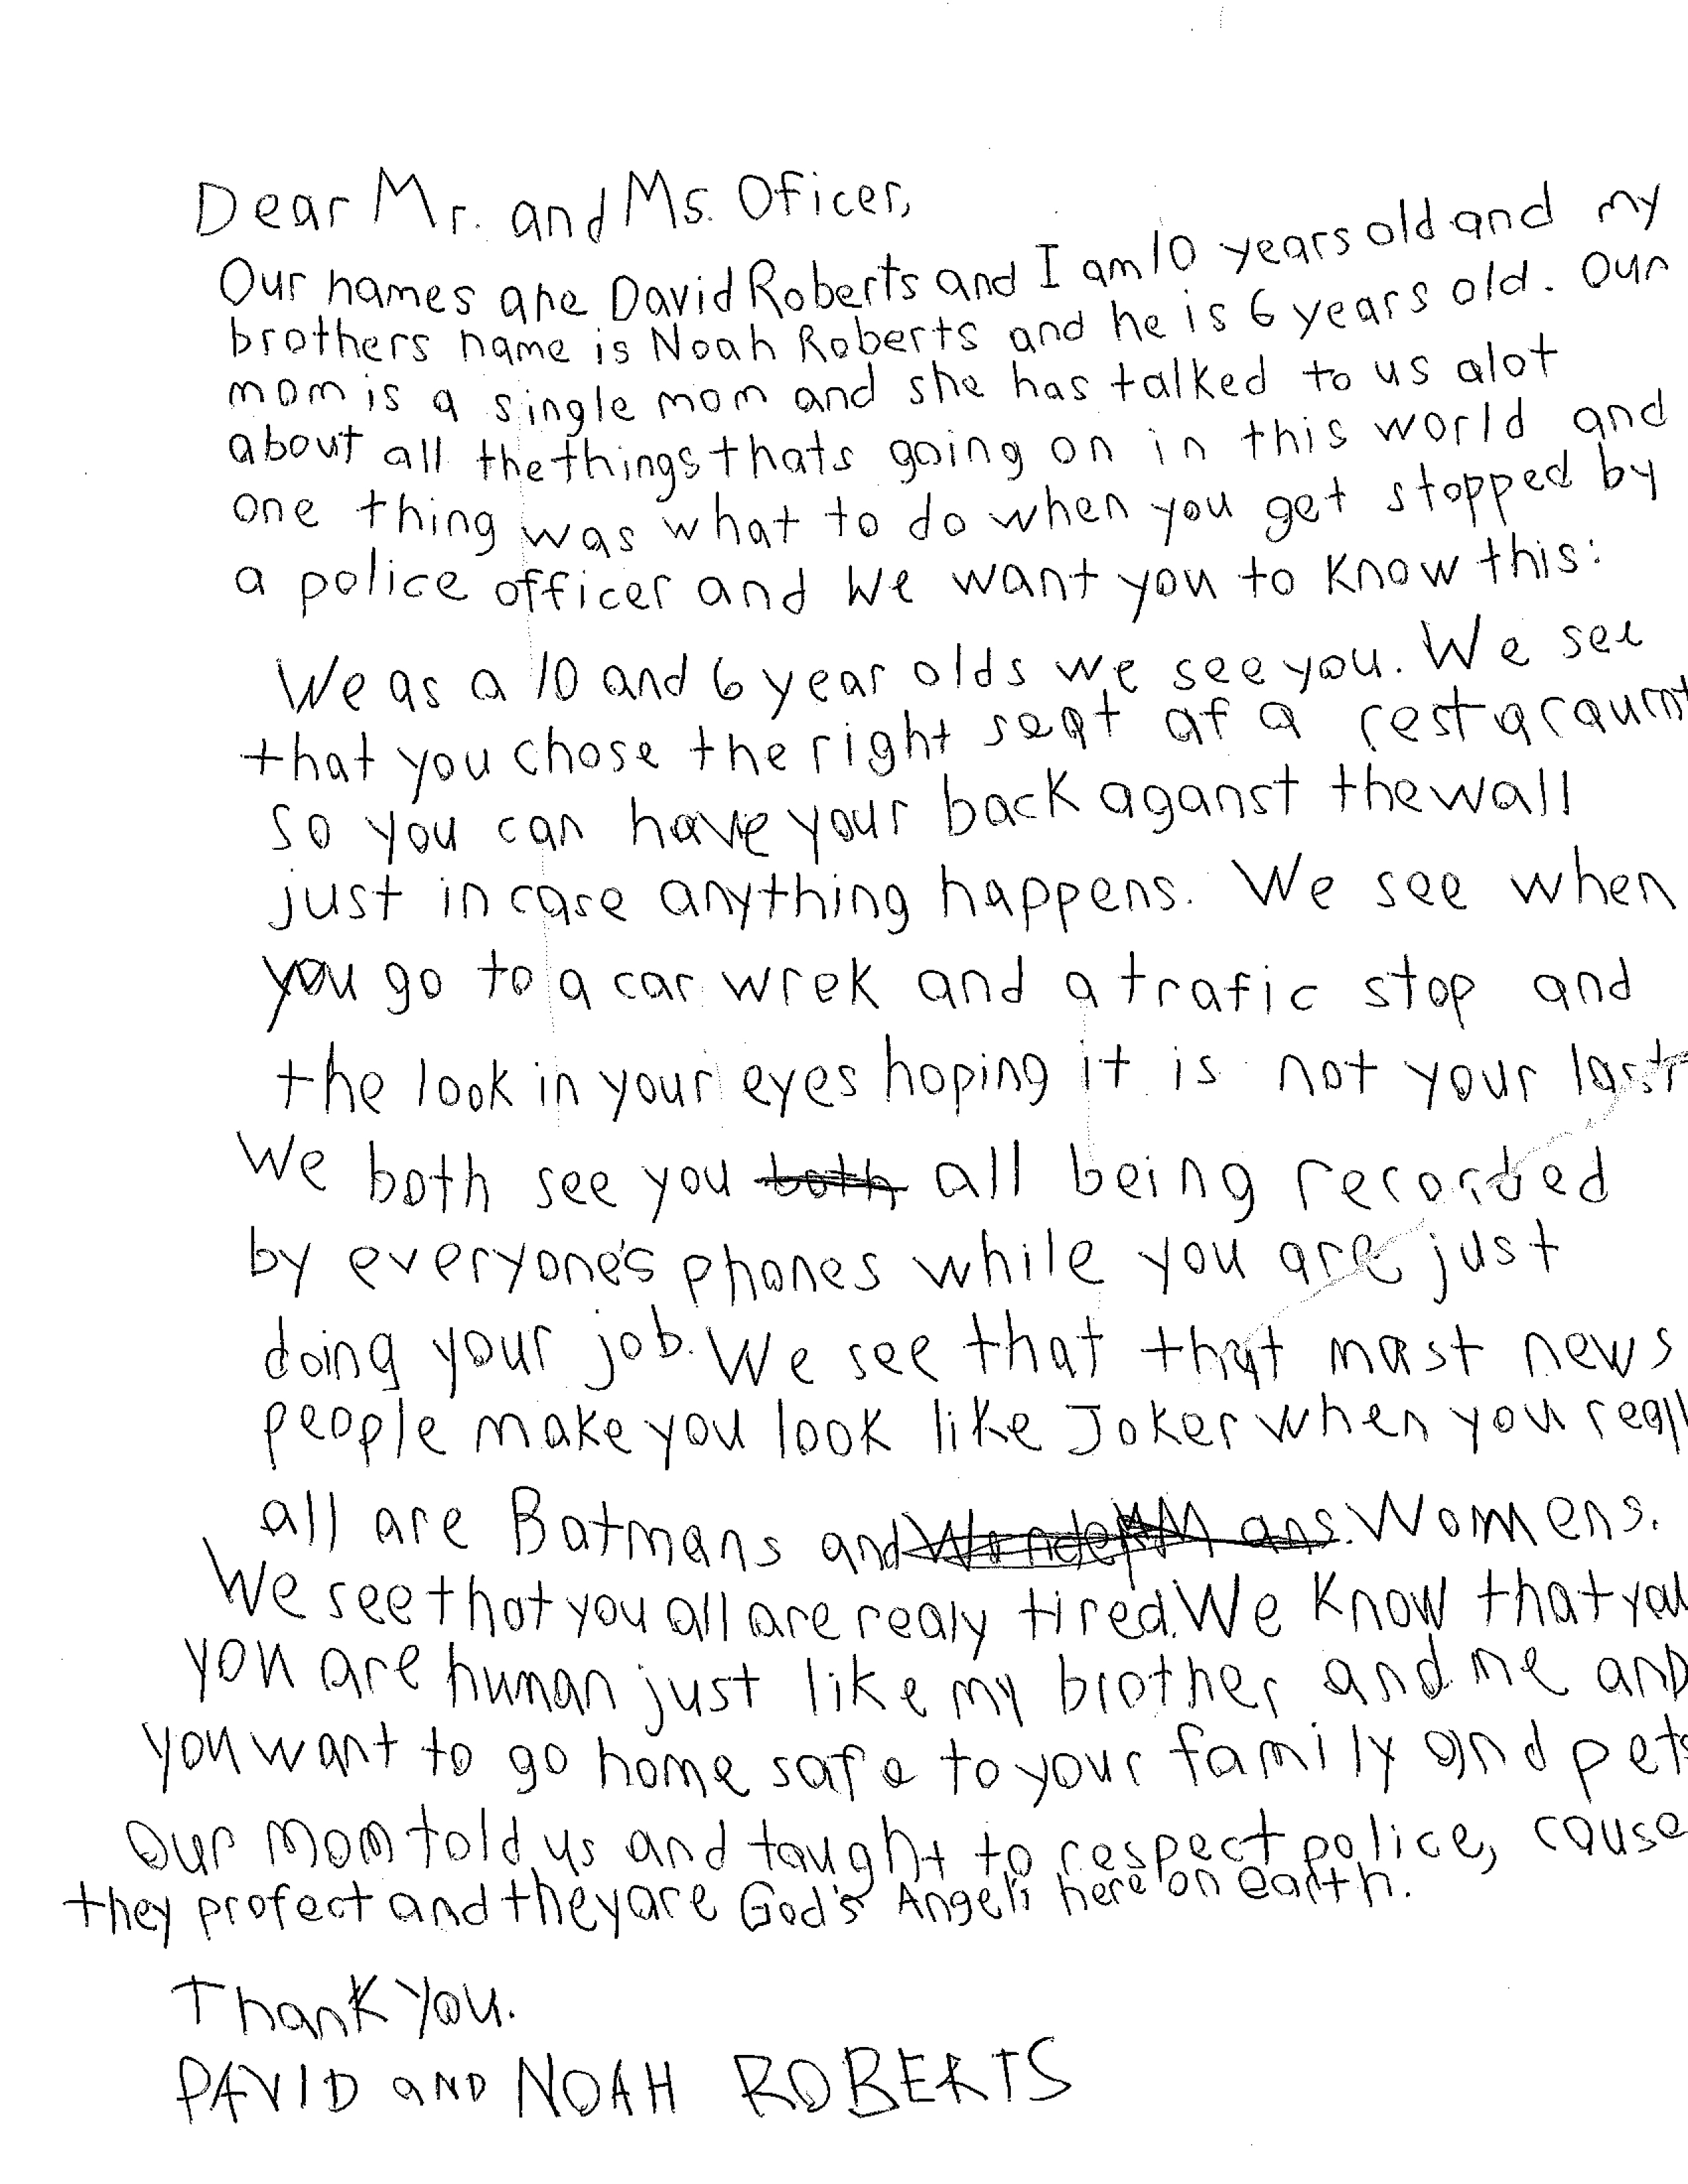 Dear Mr. and Ms. Oficer,
Our names are David Roberts and I am 10 years old and my
brothers name is Noah Roberts and he is 6 years old. Our
mom is a single mom and she has talked to us alot
about all the things thats going on in this world and
one thing was what to do when you get stopped by
a police officer and We want you to know this:
We as a 10 and 6 year olds we see you. We see
that you chose the right seat at a restaraumt
so you can have your back aganst the wall
just in case anything happens. We see when
you go to a car wrek and a trafic stop and
the look in your eyes hoping it is not your last
We both see you both all being recorded
by everyone's phones while you are just
doing your job. We see that that most news
people make you look like Joker when you reall
all are Batmans and WonderMM ans. Womens.
We see that you all are realy tired. We know that you
you are human just like my brother and me and
you want to go home safe to your family and pets
Our Mom told us and taught to respect police, cause
they protect and they are God's Angel's here on earth.
Thank You.
DAVID AND NOAH ROBERTS